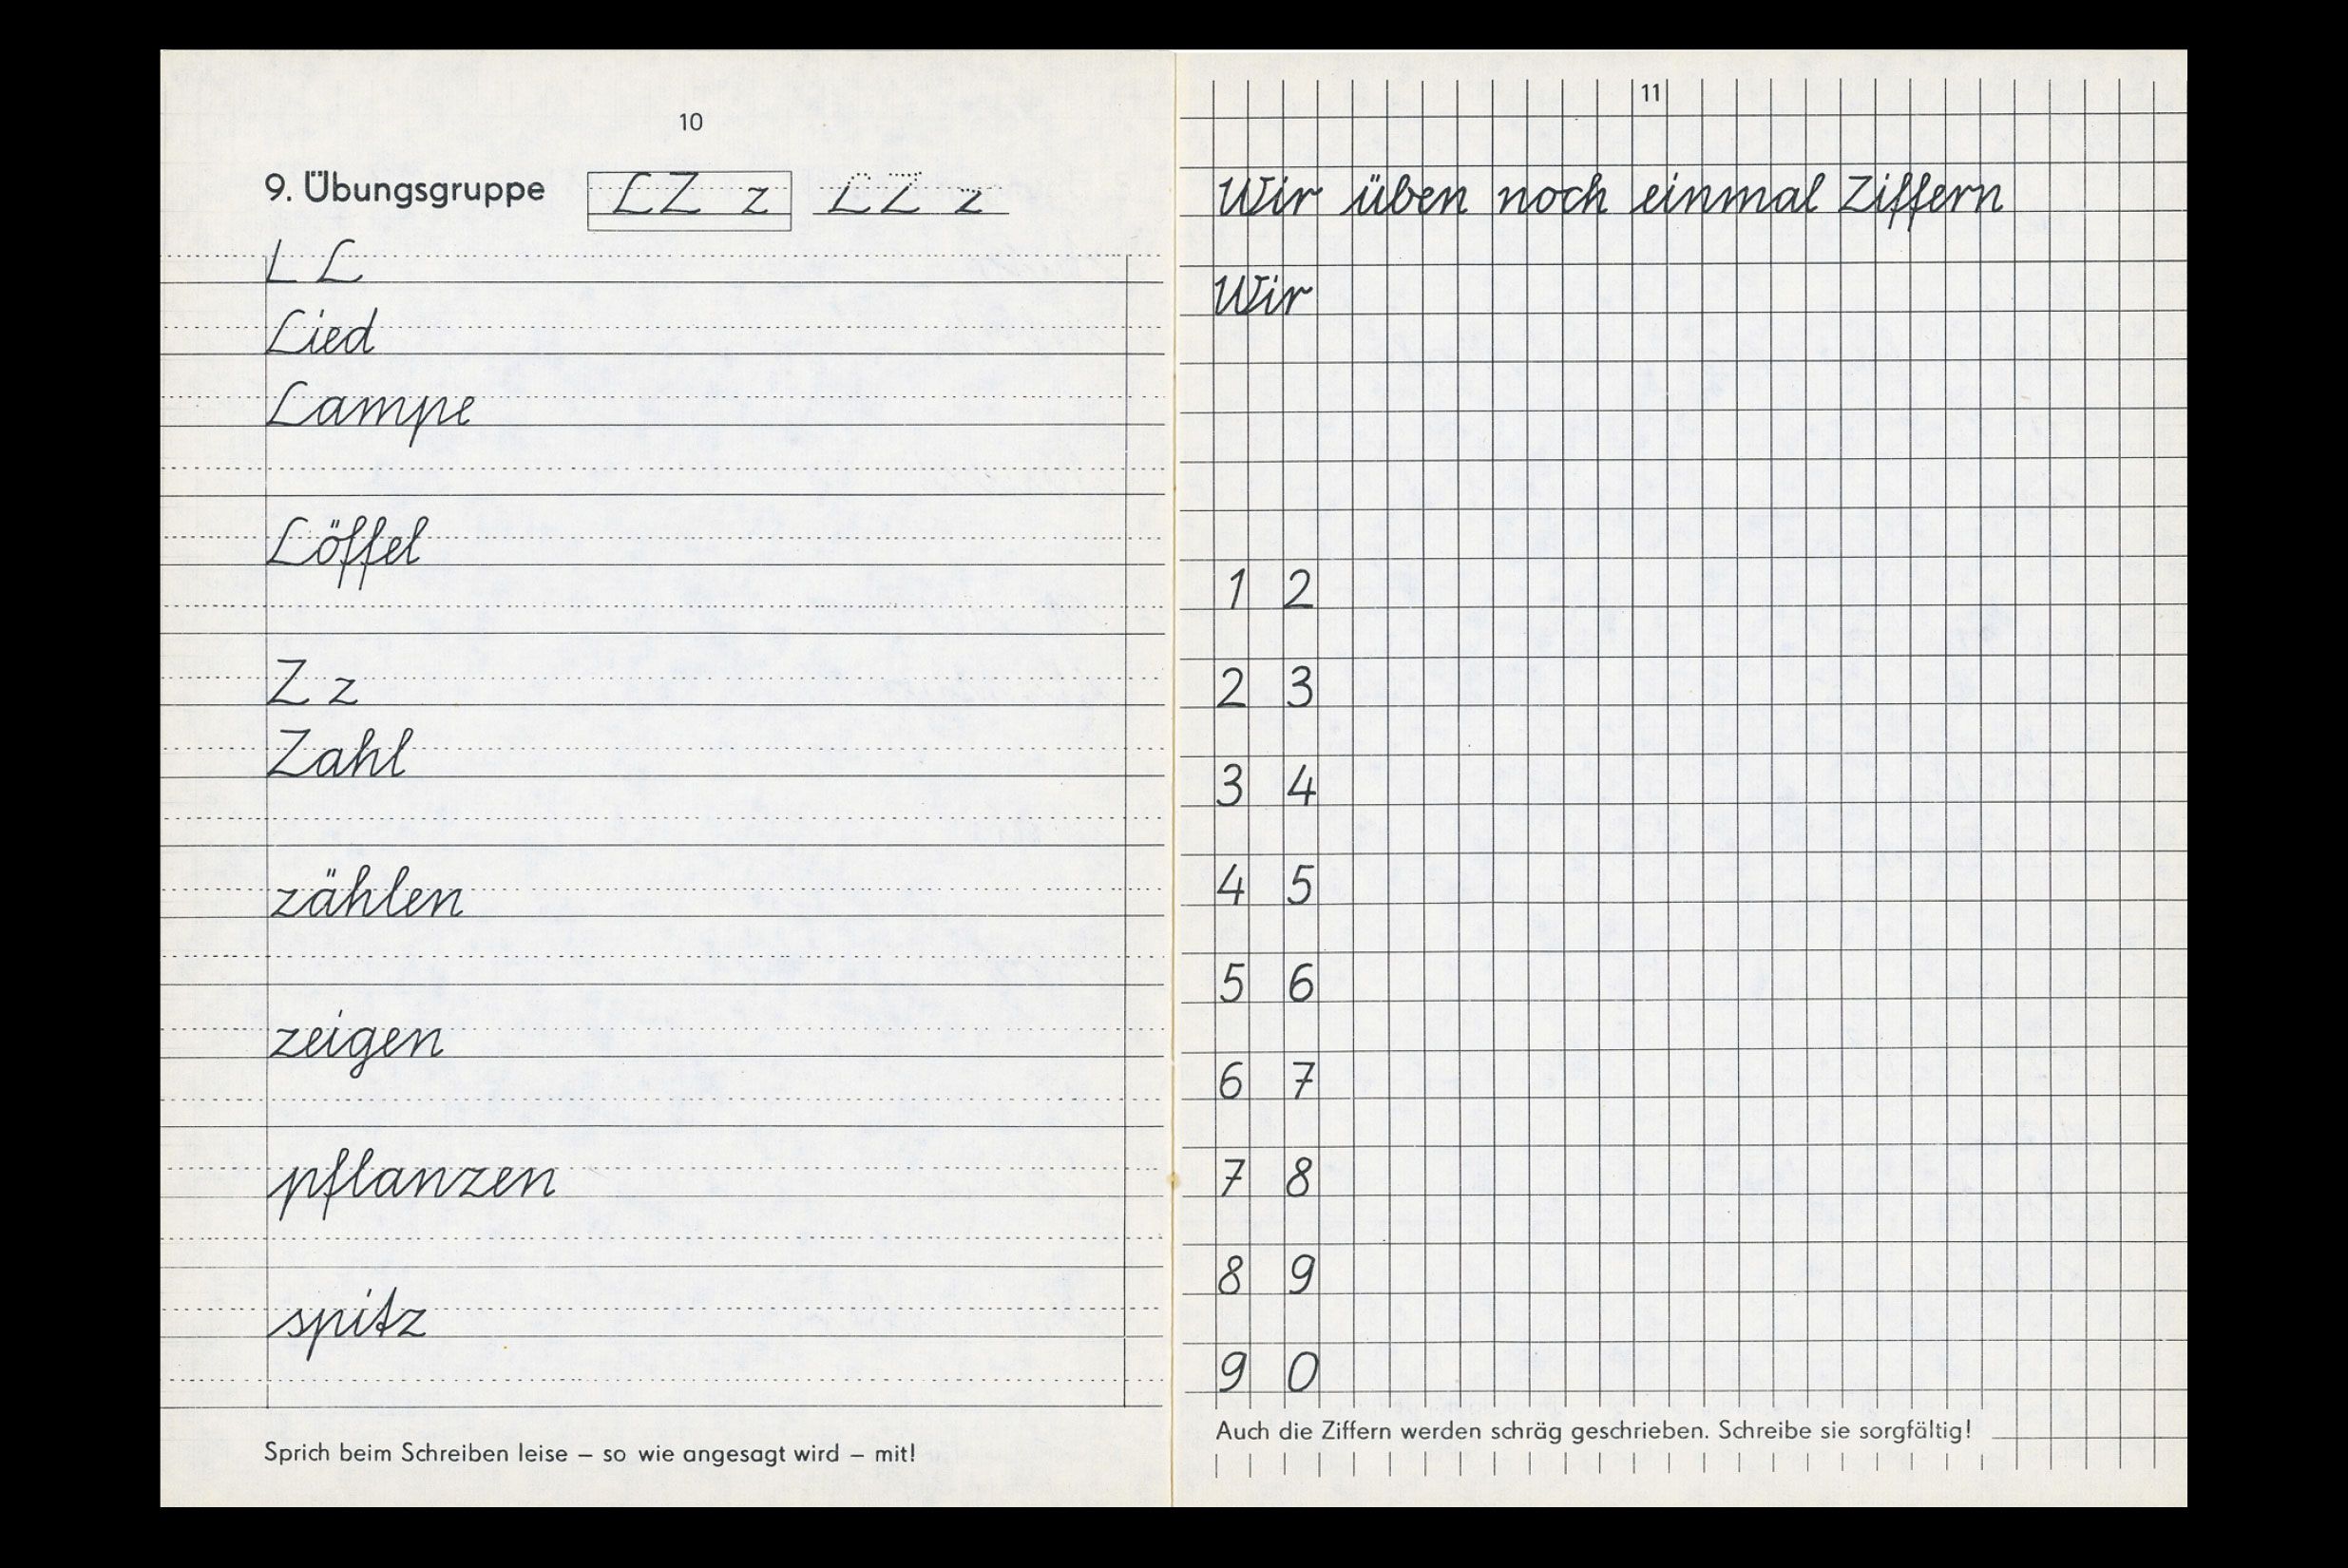 10
9. Übungsgruppe L Z z L Z z
L L
Lied
Lampe
Löffel
Z z
Zahl
zählen
zeigen
pflanzen
spitz
Sprich beim Schreiben leise – so wie angesagt wird – mit!
11
Wir üben noch einmal Ziffern
Wir
1 2
2 3
3 4
4 5
5 6
6 7
7 8
8 9
9 0
Auch die Ziffern werden schräg geschrieben. Schreibe sie sorgfältig!